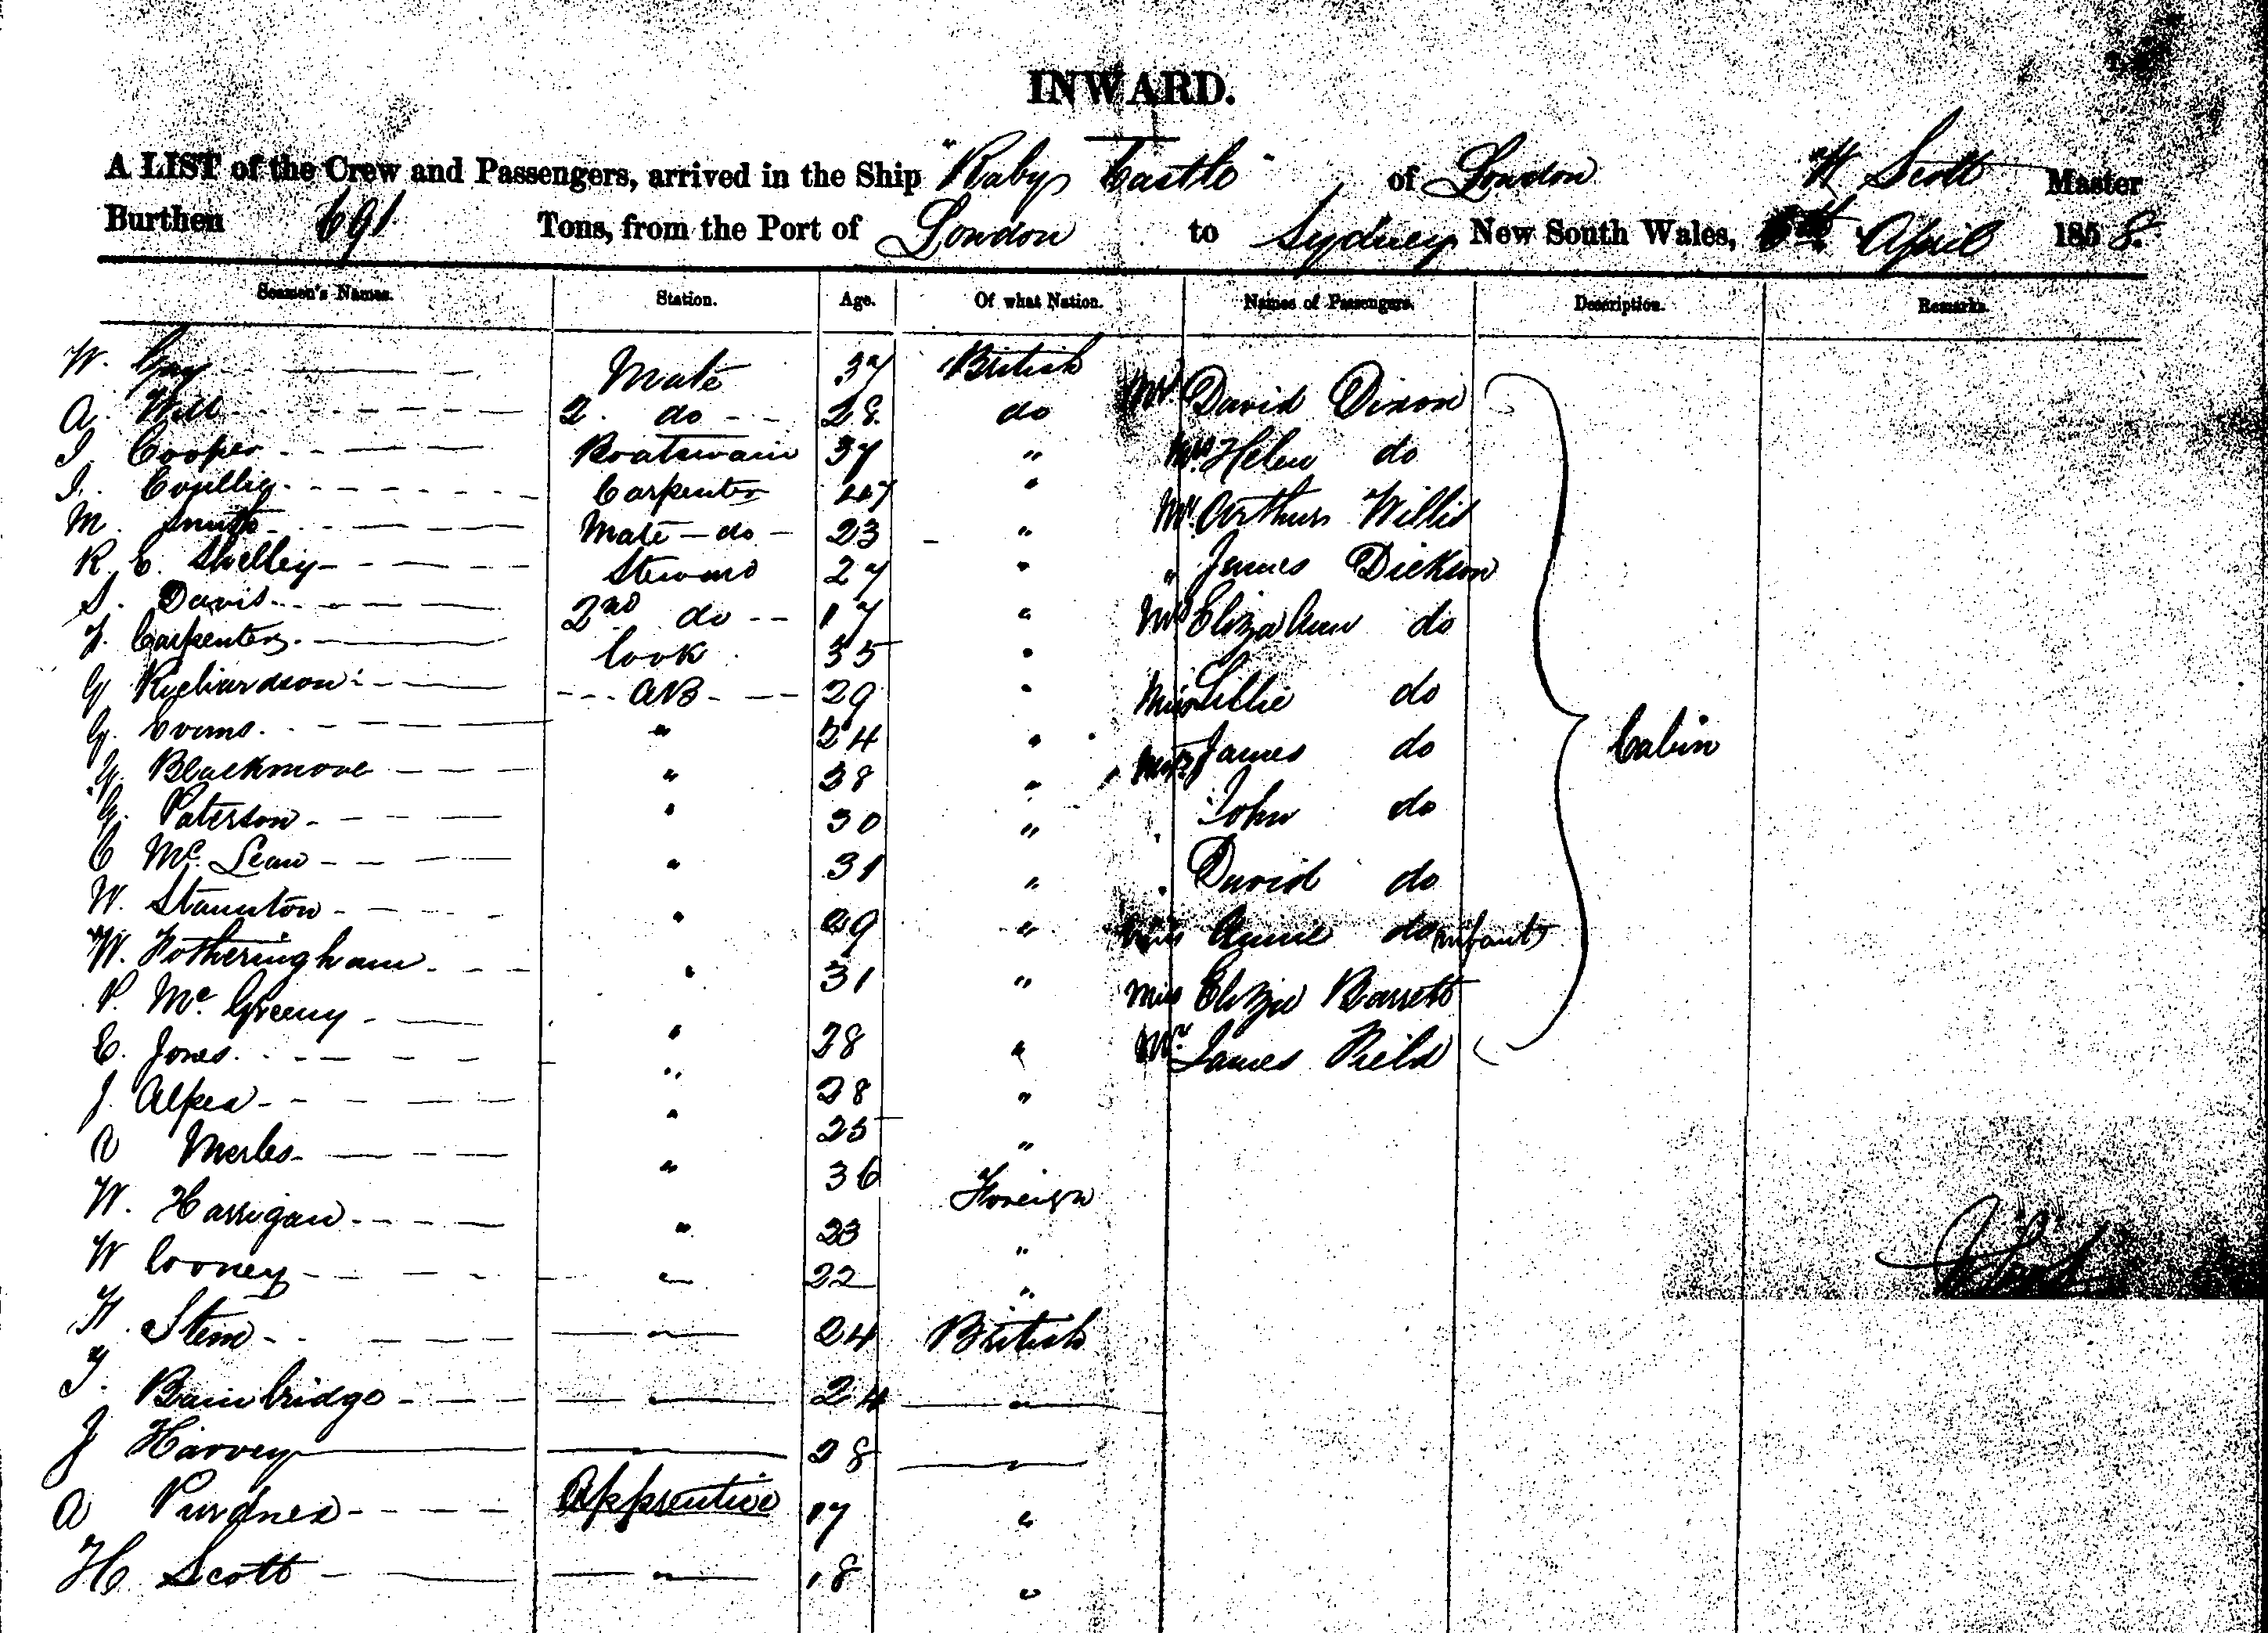 INWARD.
A LIST of the Crew and Passengers, arrived in the Ship "Raby Castle" of London W Scott Master
Burthen 691 Tons, from the Port of London to Sydney, New South Wales, April 1858.
Seamen's Names. Station. Age. Of what Nation. Names of Passengers. Description. Remarks.
W. Gay Mate 37 British Mr David Dixon
A. Will 2 do 28 do Mrs Helen do
J. Cooper Boatswain 37 " Mr. Arthur Willis
J. Carpenter 47 " " James Dickson
M. Smith Mate do 23 " Mrs Eliza Ann do
R. C. Shelley Steward 27 " Miss Lillie do
S. Davis 2nd do 17 " James do
F. Carpenter Cook 35 " John do
G Richardson AB 29 " David do
G. Evans " 24 " Miss Annie do infant
G. Blackmore " 38 " Miss Eliza Barrett
G. Paterson " 30 " Mr. James Field
C Mc. Lean " 31 " Cabin
W. Staunton " 29 "
W. Fotheringham " 31 "
P. Mc. Greeny " 28 "
C. Jones " 28 "
J. " 25 "
Merles " 36 Foreign
W. Harrigan " 23 "
W Cooney " 22 "
Stem " 24 British
Bainbridge " 24 "
J Harvey " 28 "
A Apprentice 17 "
H Scott " 18 "